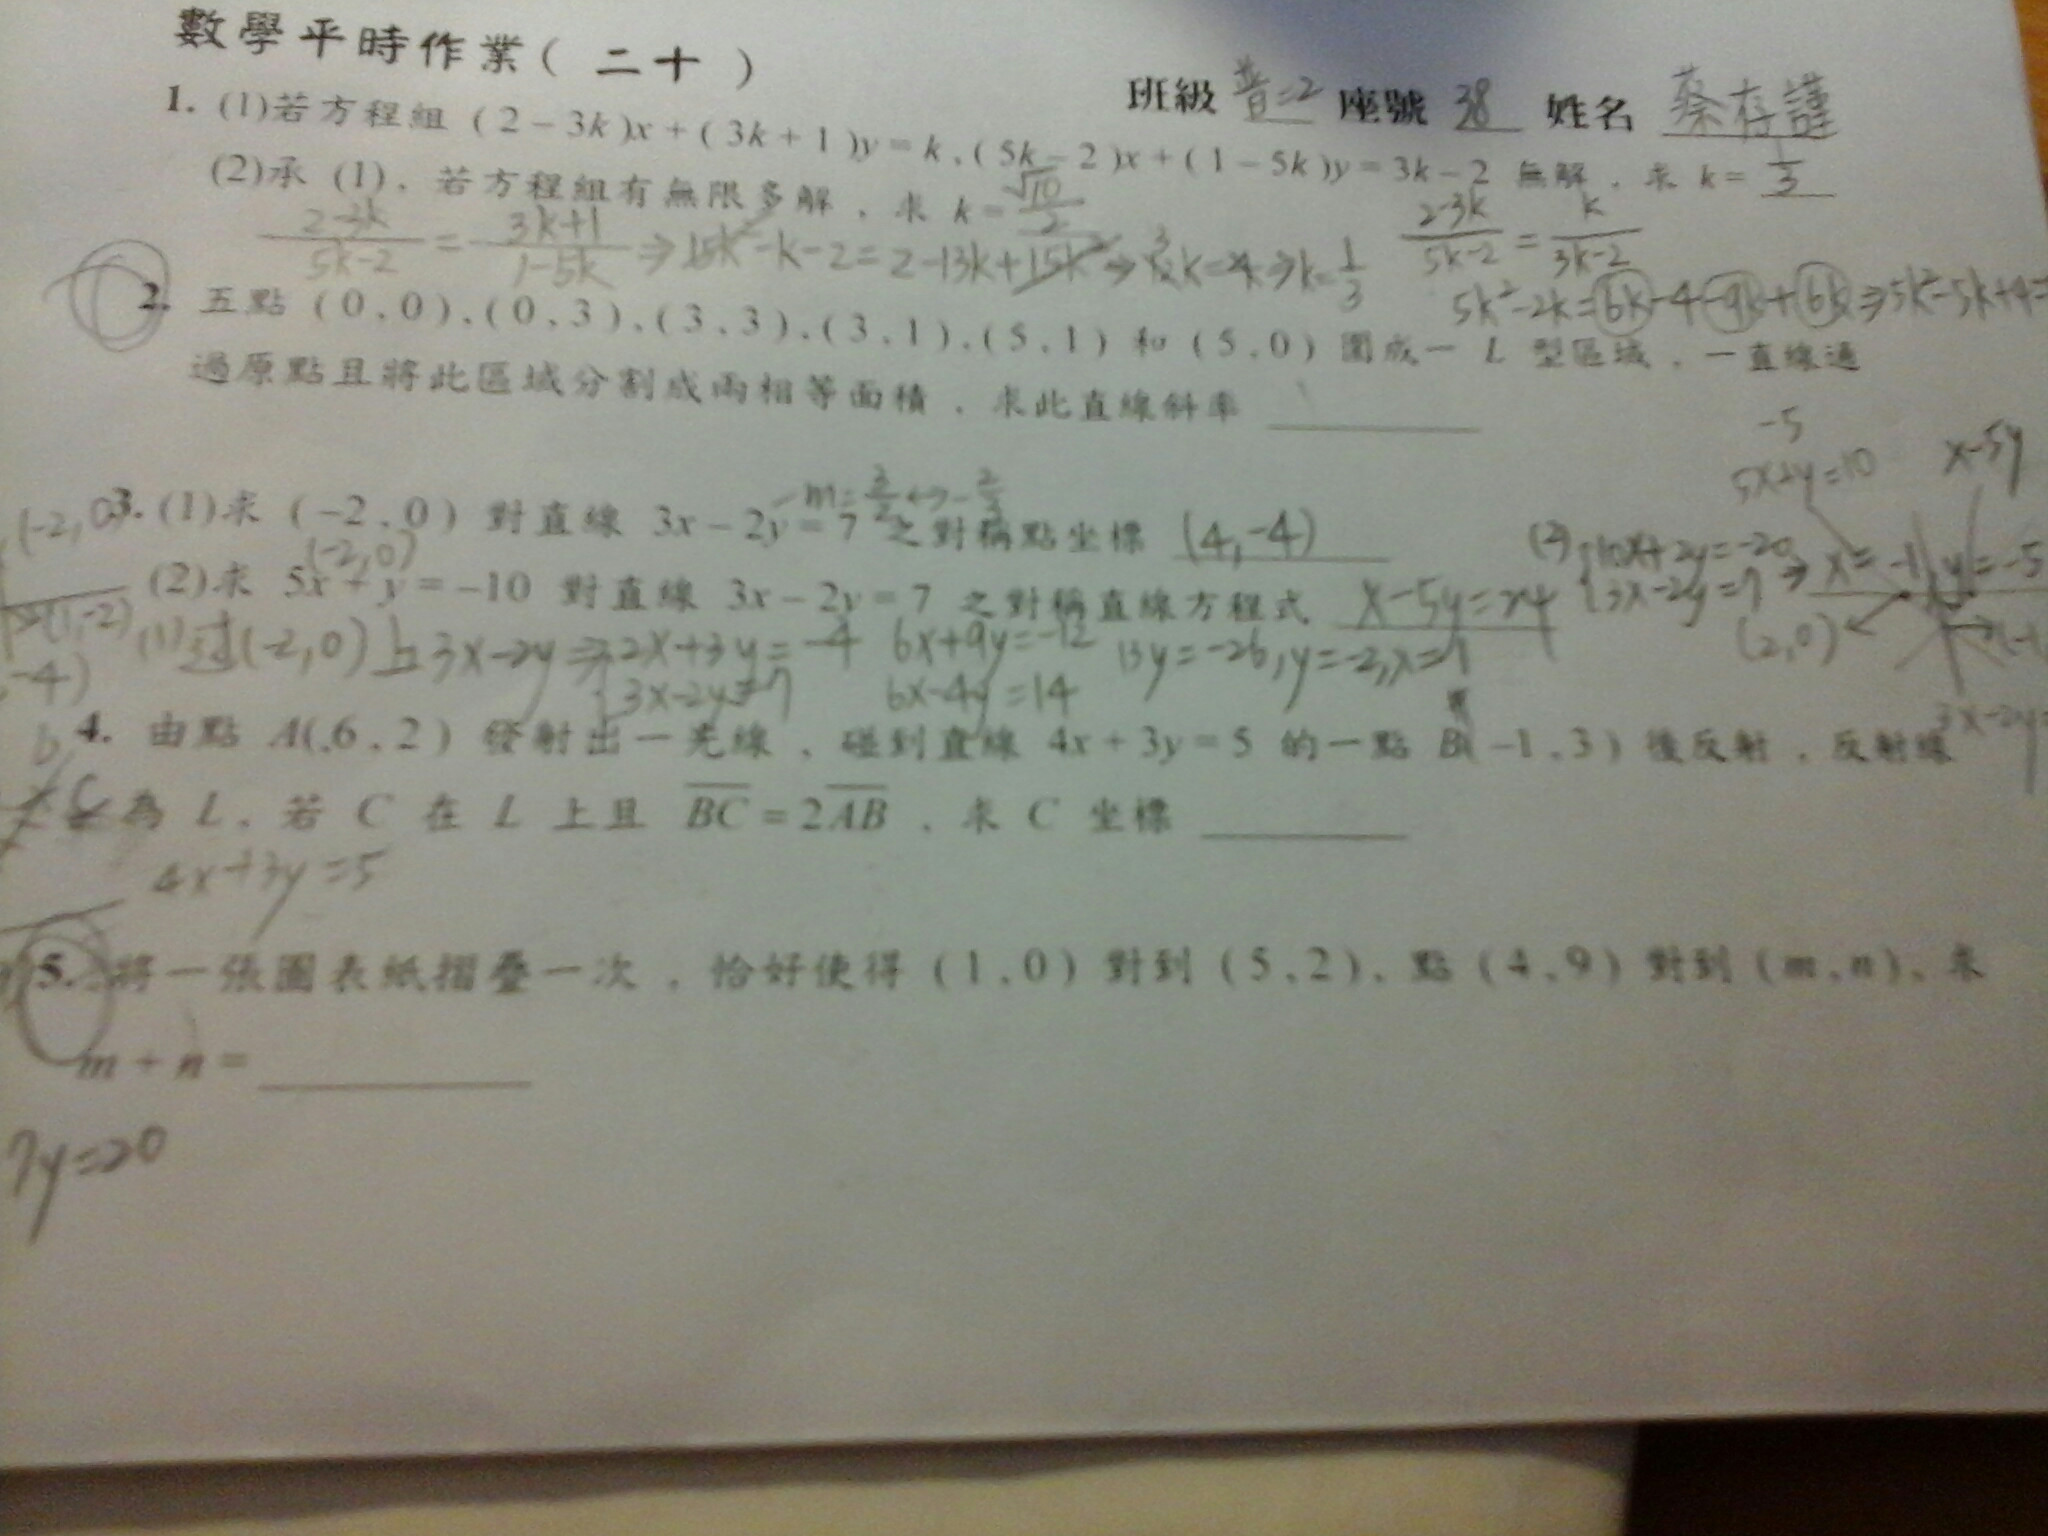 數學平時作業( 二十 )
班級 普二2 座號 38 姓名 蔡存謹
1. (1)若方程組 (2-3k)x+(3k+1)y=k,(5k-2)x+(1-5k)y=3k-2 無解,求 k= 1/3
(2)承 (1),若方程組有無限多解,求 k= √10/2
(2-3k)/(5k-2) = (3k+1)/(1-5k) ⇒ 15k²-k-2=2-13k+15k² ⇒ k=1/3
(2-3k)/(5k-2) = k/(3k-2)
5k²-2k=6k-4-9k+6k⇒5k²-5k+4=
2. 五點 (0,0),(0,3),(3,3),(3,1),(5,1) 和 (5,0) 圍成一 L 型區域,一直線通
過原點且將此區域分割成兩相等面積,求此直線斜率
-5
5x+y=10 x-5y
m=3/2↔-2/3
(-2,0)
3. (1)求 (-2,0) 對直線 3x-2y=7 之對稱點坐標 (4,-4)
(-2,0)
(2)求 5x+y=-10 對直線 3x-2y=7 之對稱直線方程式 x-5y=24
(2) 10x+2y=-20
3x-2y=7 ⇒ x=-1, y=-5
(1,-2)
-4)
(1)过(-2,0)⊥3x-2y⇒2x+3y=-4 6x+9y=-12 13y=-26,y=-2,x=1
3x-2y=7 6x-4y=14
(2,0)
3x-2y=
4. 由點 A(,6,2) 發射出一光線,碰到直線 4x+3y=5 的一點 B(-1,3) 後反射,反射線
為 L,若 C 在 L 上且 BC=2AB,求 C 坐標
4x+3y=5
5. 將一張圖表紙摺疊一次,恰好使得 (1,0) 對到 (5,2),點 (4,9) 對到 (m,n),求
m+n=
7y=20